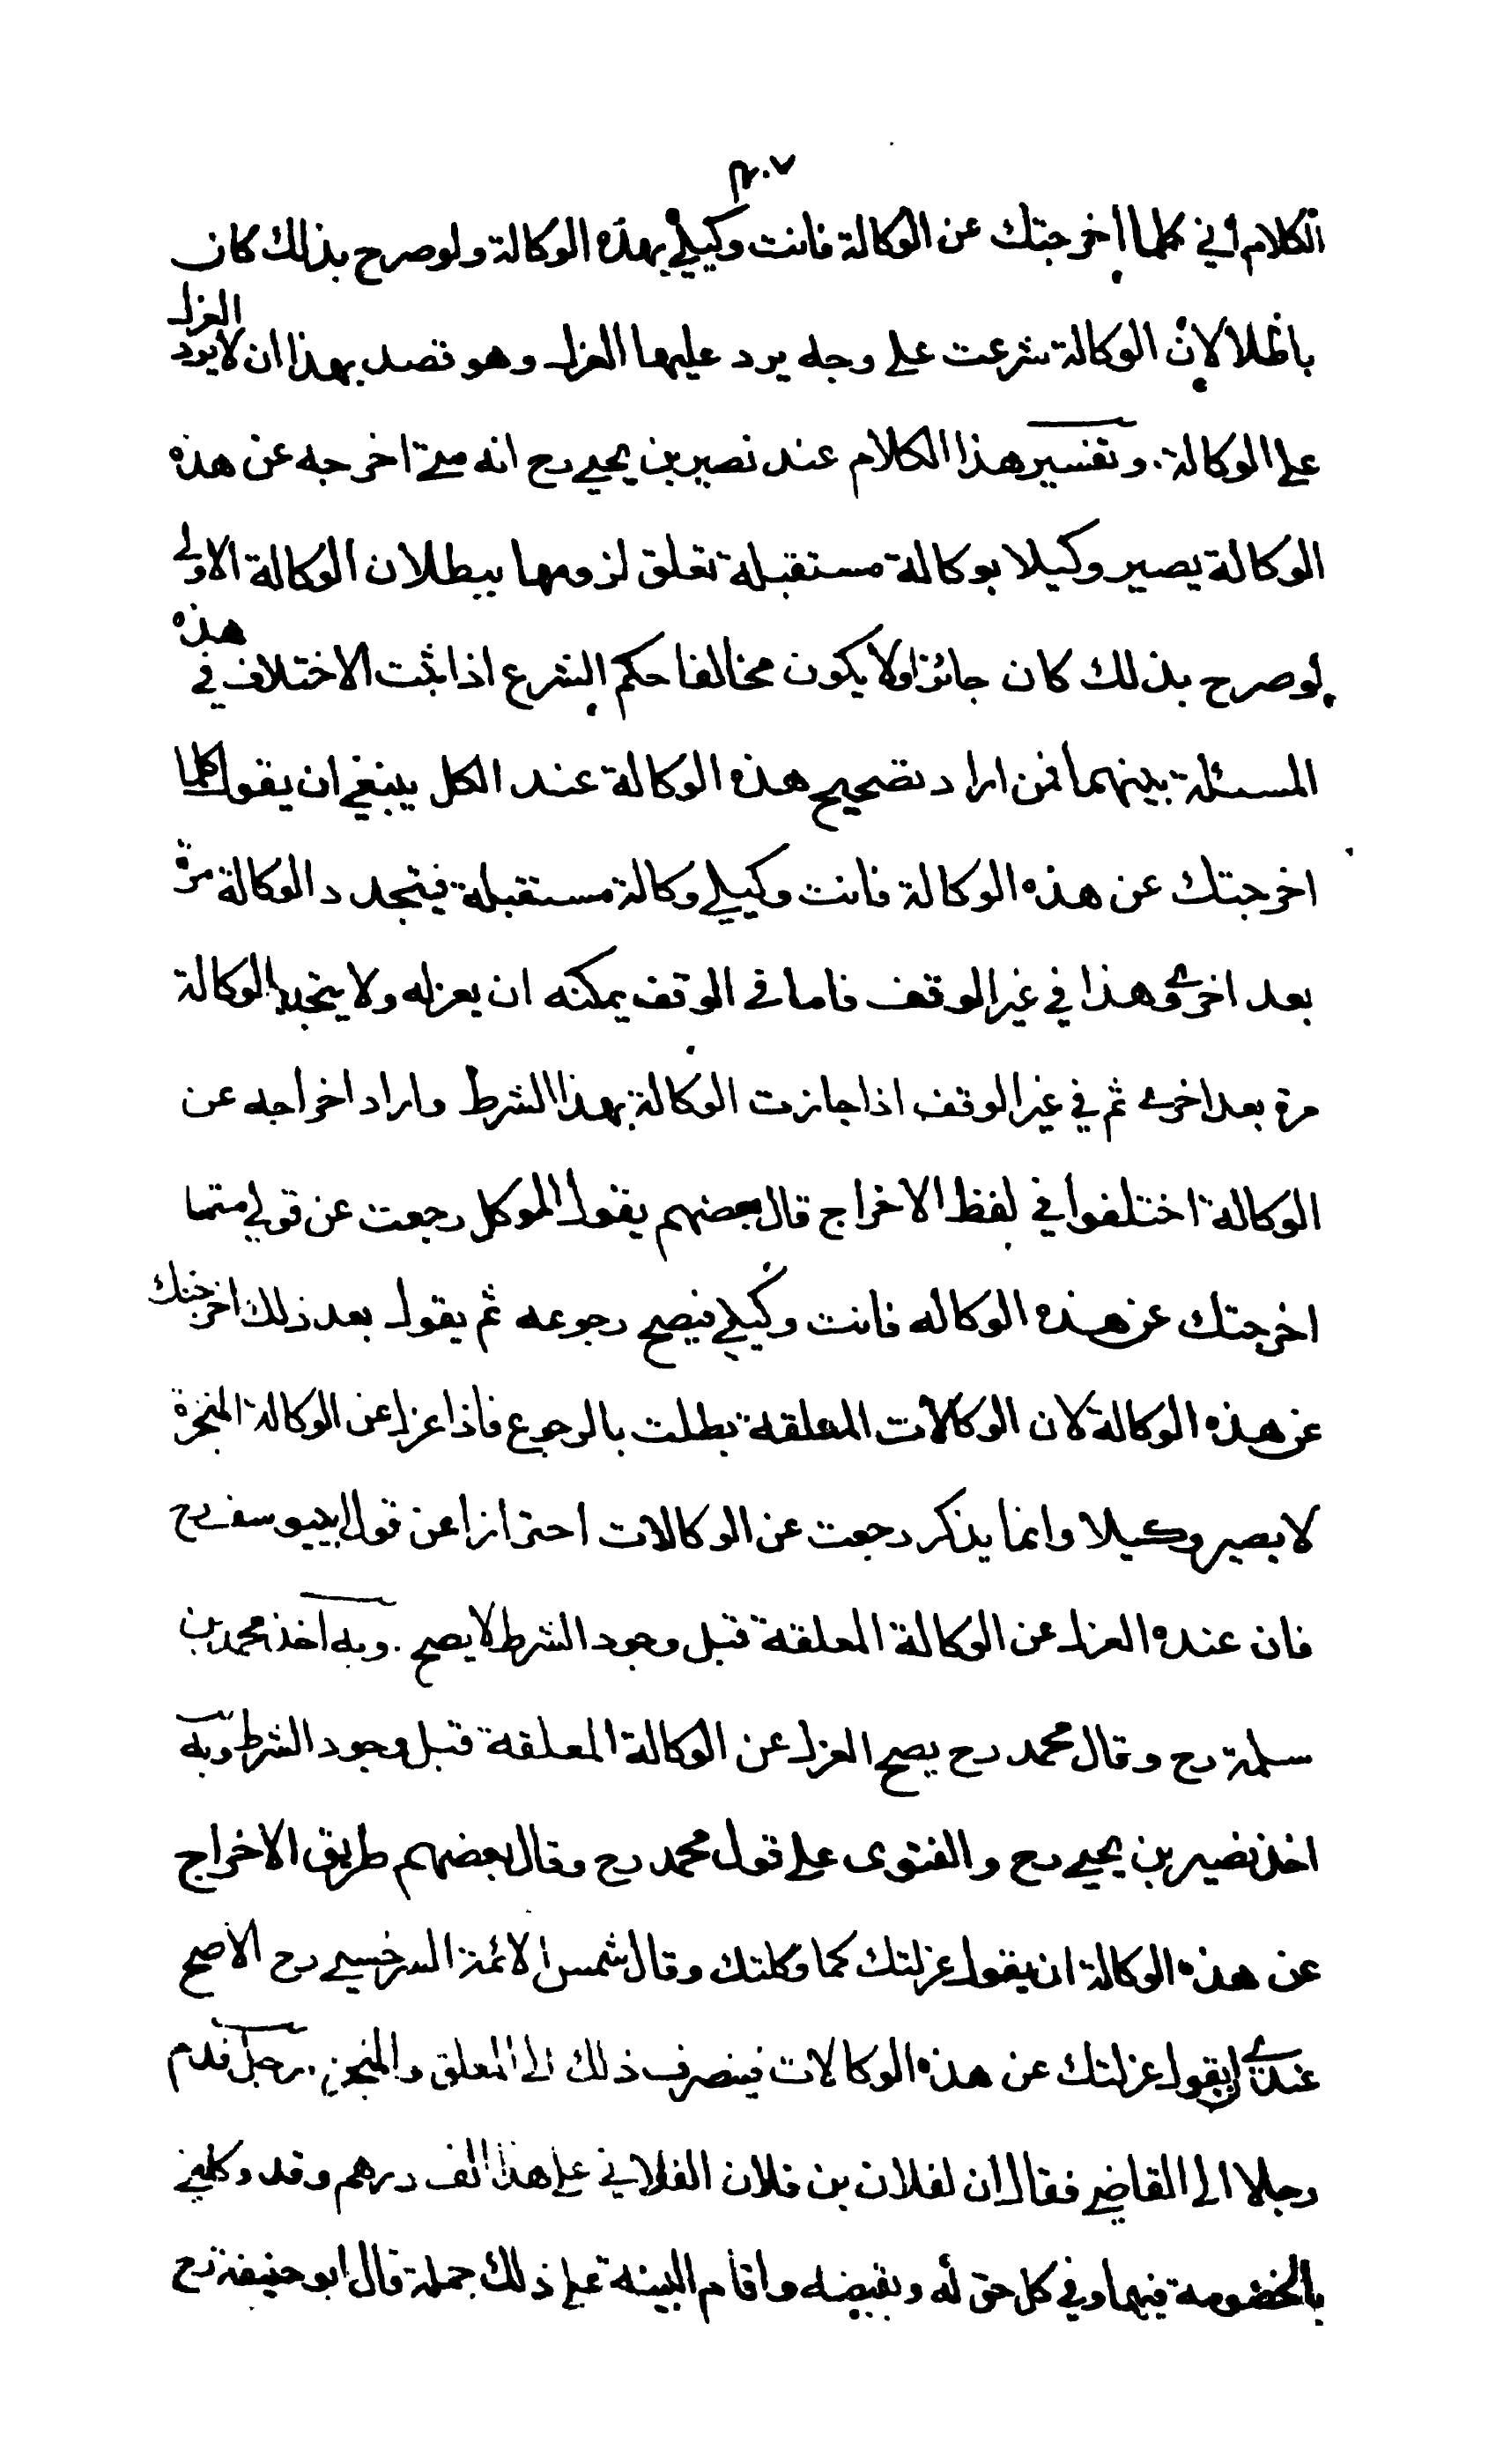 ٣٠٧
الكلام أني كلما اخرجتك عن الوكالة فانت وكيلي بهذه الوكالة ولو صرح بذلك كان
باطلا لان الوكالة شرعت على وجه يرد عليها العزل وهو قصد بهذا ان لا يرد العزل
على الوكالة . وتفسير هذا الكلام عند نصير بن يحيى رح انه متى اخرجه عن هذه
الوكالة يصير وكيلا بوكالة مستقبلة تعلق لزومها ببطلان الوكالة الاولى
لو صرح بذلك كان جائزا ولا يكون مخالفا حكم الشرع اذا ثبت الاختلاف في هذه
المسئلة بينهما فمن اراد تصحيح هذه الوكالة عند الكل ينبغي ان يقول كلما
اخرجتك عن هذه الوكالة فانت وكيلي وكالة مستقبلة فيتجدد الوكالة مرة
بعد اخرى وهذا في غير الوقف فاما في الوقف يمكنه ان يعزله ولا يتجدد الوكالة
مرة بعد اخرى ثم في غير الوقف اذا جازت الوكالة بهذا الشرط واراد اخراجه عن
الوكالة اختلفوا في لفظ الاخراج قال بعضهم يقول الموكل رجعت عن قولي متما
اخرجتك عن هذه الوكاله فانت وكيلي فيصح رجوعه ثم يقول بعد ذلك اخرجتك
عن هذه الوكالة لان الوكالات المعلقة بطلت بالرجوع فاذا عزل عن الوكالة المنجزة
لا يصير وكيلا وانما يذكر رجعت عن الوكالات احترازا عن قول ابي يوسف رح
فان عنده العزل عن الوكالة المعلقة قبل وجود الشرط لا يصح . وبه اخذ محمد بن
سلمة رح وقال محمد رح يصح العزل عن الوكالة المعلقة قبل وجود الشرط وبه
اخذ نصير بن يحيى رح والفتوى على قول محمد رح وقال بعضهم طريق الاخراج
عن هذه الوكالة ان يقول عزلتك كما وكلتك وقال شمس الائمة السرخسي رح الاصح
عندي ان يقول عزلتك عن هذه الوكالات فينصرف ذلك الى المعلق والمنجز . رجل قدم
رجلا الى القاضي فقال ان لفلان بن فلان الفلاني على هذا الف درهم وقد وكلني
بالخصومة فيها وفي كل حق له وبقبضه واقام البينة على ذلك جملة قال ابو حنيفة رح